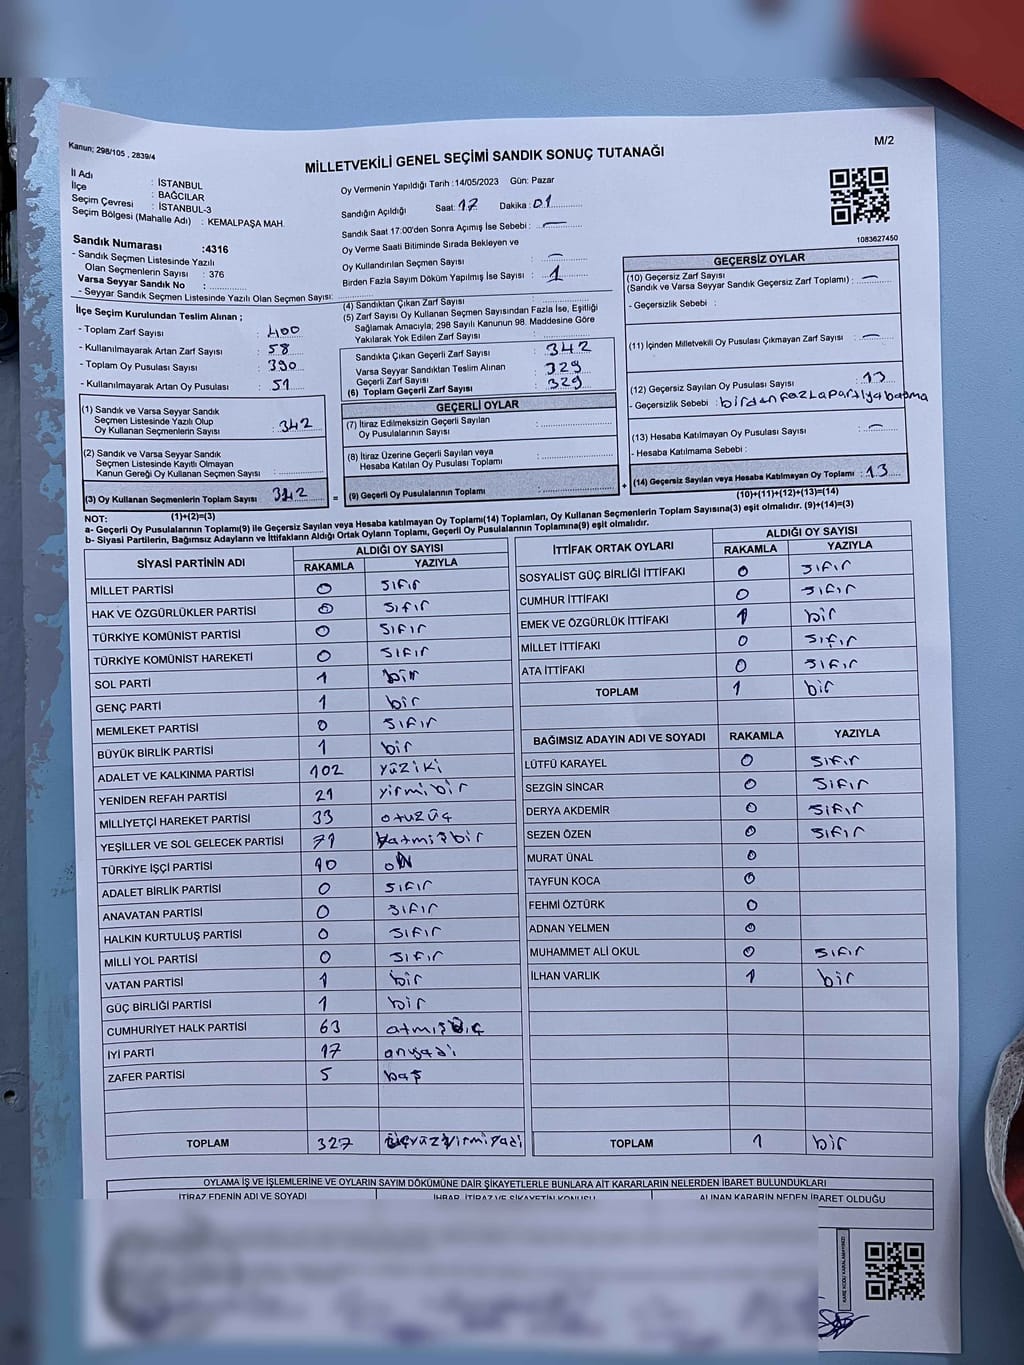 Kanun; 298/105 , 2839/4
M/2
MİLLETVEKİLİ GENEL SEÇİMİ SANDIK SONUÇ TUTANAĞI
İl Adı : İSTANBUL
İlçe : BAĞCILAR
Seçim Çevresi : İSTANBUL-3
Seçim Bölgesi (Mahalle Adı) : KEMALPAŞA MAH.
Sandık Numarası :4316
- Sandık Seçmen Listesinde Yazılı
Olan Seçmenlerin Sayısı : 376
Varsa Seyyar Sandık No :
- Seyyar Sandık Seçmen Listesinde Yazılı Olan Seçmen Sayısı:
Oy Vermenin Yapıldığı Tarih :14/05/2023 Gün: Pazar
Sandığın Açıldığı Saat: 17 Dakika: 01
Sandık Saat 17:00'den Sonra Açımış İse Sebebi : —
Oy Verme Saati Bitiminde Sırada Bekleyen ve
Oy Kullandırılan Seçmen Sayısı : —
Birden Fazla Sayım Döküm Yapılmış İse Sayısı : 1
1083627450
İlçe Seçim Kurulundan Teslim Alınan ;
- Toplam Zarf Sayısı : 400
- Kullanılmayarak Artan Zarf Sayısı : 58
- Toplam Oy Pusulası Sayısı : 390
- Kullanılmayarak Artan Oy Pusulası : 51
(1) Sandık ve Varsa Seyyar Sandık
Seçmen Listesinde Yazılı Olup
Oy Kullanan Seçmenlerin Sayısı : 342
(2) Sandık ve Varsa Seyyar Sandık
Seçmen Listesinde Kayıtlı Olmayan
Kanun Gereği Oy Kullanan Seçmen Sayısı :
(3) Oy Kullanan Seçmenlerin Toplam Sayısı : 342
(1)+(2)=(3)
(4) Sandıktan Çıkan Zarf Sayısı :
(5) Zarf Sayısı Oy Kullanan Seçmen Sayısından Fazla İse, Eşitliği
Sağlamak Amacıyla; 298 Sayılı Kanunun 98. Maddesine Göre
Yakılarak Yok Edilen Zarf Sayısı :
Sandıkta Çıkan Geçerli Zarf Sayısı : 342
Varsa Seyyar Sandıktan Teslim Alınan
Geçerli Zarf Sayısı : 329
(6) Toplam Geçerli Zarf Sayısı : 329
GEÇERLİ OYLAR
(7) İtiraz Edilmeksizin Geçerli Sayılan
Oy Pusulalarının Sayısı :
(8) İtiraz Üzerine Geçerli Sayılan veya
Hesaba Katılan Oy Pusulası Toplamı :
= (9) Geçerli Oy Pusulalarının Toplamı :
GEÇERSİZ OYLAR
(10) Geçersiz Zarf Sayısı
(Sandık ve Varsa Seyyar Sandık Geçersiz Zarf Toplamı) : —
- Geçersizlik Sebebi :
(11) İçinden Milletvekili Oy Pusulası Çıkmayan Zarf Sayısı : —
(12) Geçersiz Sayılan Oy Pusulası Sayısı : 13
- Geçersizlik Sebebi : birden fazla partiya basma
(13) Hesaba Katılmayan Oy Pusulası Sayısı : —
- Hesaba Katılmama Sebebi :
+ (14) Geçersiz Sayılan veya Hesaba Katılmayan Oy Toplamı : 13
(10)+(11)+(12)+(13)=(14)
NOT:
a- Geçerli Oy Pusulalarının Toplamı(9) ile Geçersiz Sayılan veya Hesaba katılmayan Oy Toplamı(14) Toplamları, Oy Kullanan Seçmenlerin Toplam Sayısına(3) eşit olmalıdır. (9)+(14)=(3)
b- Siyasi Partilerin, Bağımsız Adayların ve İttifakların Aldığı Ortak Oyların Toplamı, Geçerli Oy Pusulalarının Toplamına(9) eşit olmalıdır.
SİYASİ PARTİNİN ADI ALDIĞI OY SAYISI
RAKAMLA YAZIYLA
MİLLET PARTİSİ 0 sıfır
HAK VE ÖZGÜRLÜKLER PARTİSİ 0 sıfır
TÜRKİYE KOMÜNİST PARTİSİ 0 sıfır
TÜRKİYE KOMÜNİST HAREKETİ 0 sıfır
SOL PARTİ 1 bir
GENÇ PARTİ 1 bir
MEMLEKET PARTİSİ 0 sıfır
BÜYÜK BİRLİK PARTİSİ 1 bir
ADALET VE KALKINMA PARTİSİ 102 yüziki
YENİDEN REFAH PARTİSİ 21 yirmibir
MİLLİYETÇİ HAREKET PARTİSİ 33 otuzüç
YEŞİLLER VE SOL GELECEK PARTİSİ 71 yatmişbir
TÜRKİYE İŞÇİ PARTİSİ 10 oN
ADALET BİRLİK PARTİSİ 0 sıfır
ANAVATAN PARTİSİ 0 sıfır
HALKIN KURTULUŞ PARTİSİ 0 sıfır
MİLLİ YOL PARTİSİ 0 sıfır
VATAN PARTİSİ 1 bir
GÜÇ BİRLİĞİ PARTİSİ 1 bir
CUMHURİYET HALK PARTİSİ 63 atmışüç
İYİ PARTİ 17 onyadi
ZAFER PARTİSİ 5 baş
TOPLAM 327 üçyüzyirmiyadi
İTTİFAK ORTAK OYLARI ALDIĞI OY SAYISI
RAKAMLA YAZIYLA
SOSYALİST GÜÇ BİRLİĞİ İTTİFAKI 0 sıfır
CUMHUR İTTİFAKI 0 sıfır
EMEK VE ÖZGÜRLÜK İTTİFAKI 1 bir
MİLLET İTTİFAKI 0 sıfır
ATA İTTİFAKI 0 sıfır
TOPLAM 1 bir
BAĞIMSIZ ADAYIN ADI VE SOYADI RAKAMLA YAZIYLA
LÜTFÜ KARAYEL 0 sıfır
SEZGİN SİNCAR 0 sıfır
DERYA AKDEMİR 0 sıfır
SEZEN ÖZEN 0 sıfır
MURAT ÜNAL 0
TAYFUN KOCA 0
FEHMİ ÖZTÜRK 0
ADNAN YELMEN 0
MUHAMMET ALİ OKUL 0 sıfır
İLHAN VARLIK 1 bir
TOPLAM 1 bir
OYLAMA İŞ VE İŞLEMLERİNE VE OYLARIN SAYIM DÖKÜMÜNE DAİR ŞİKAYETLERLE BUNLARA AİT KARARLARIN NELERDEN İBARET BULUNDUKLARI
İTİRAZ EDENİN ADI VE SOYADI İHBAR, İTİRAZ VE ŞİKAYETİN KONUSU ALINAN KARARIN NEDEN İBARET OLDUĞU
KARE KODU KARALAMAYINIZ!